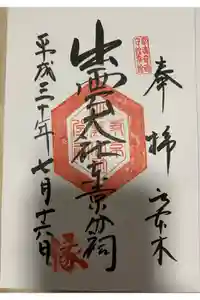 奉拝
六本木
出雲大社東京分祠
平成三十年七月十六日
縁